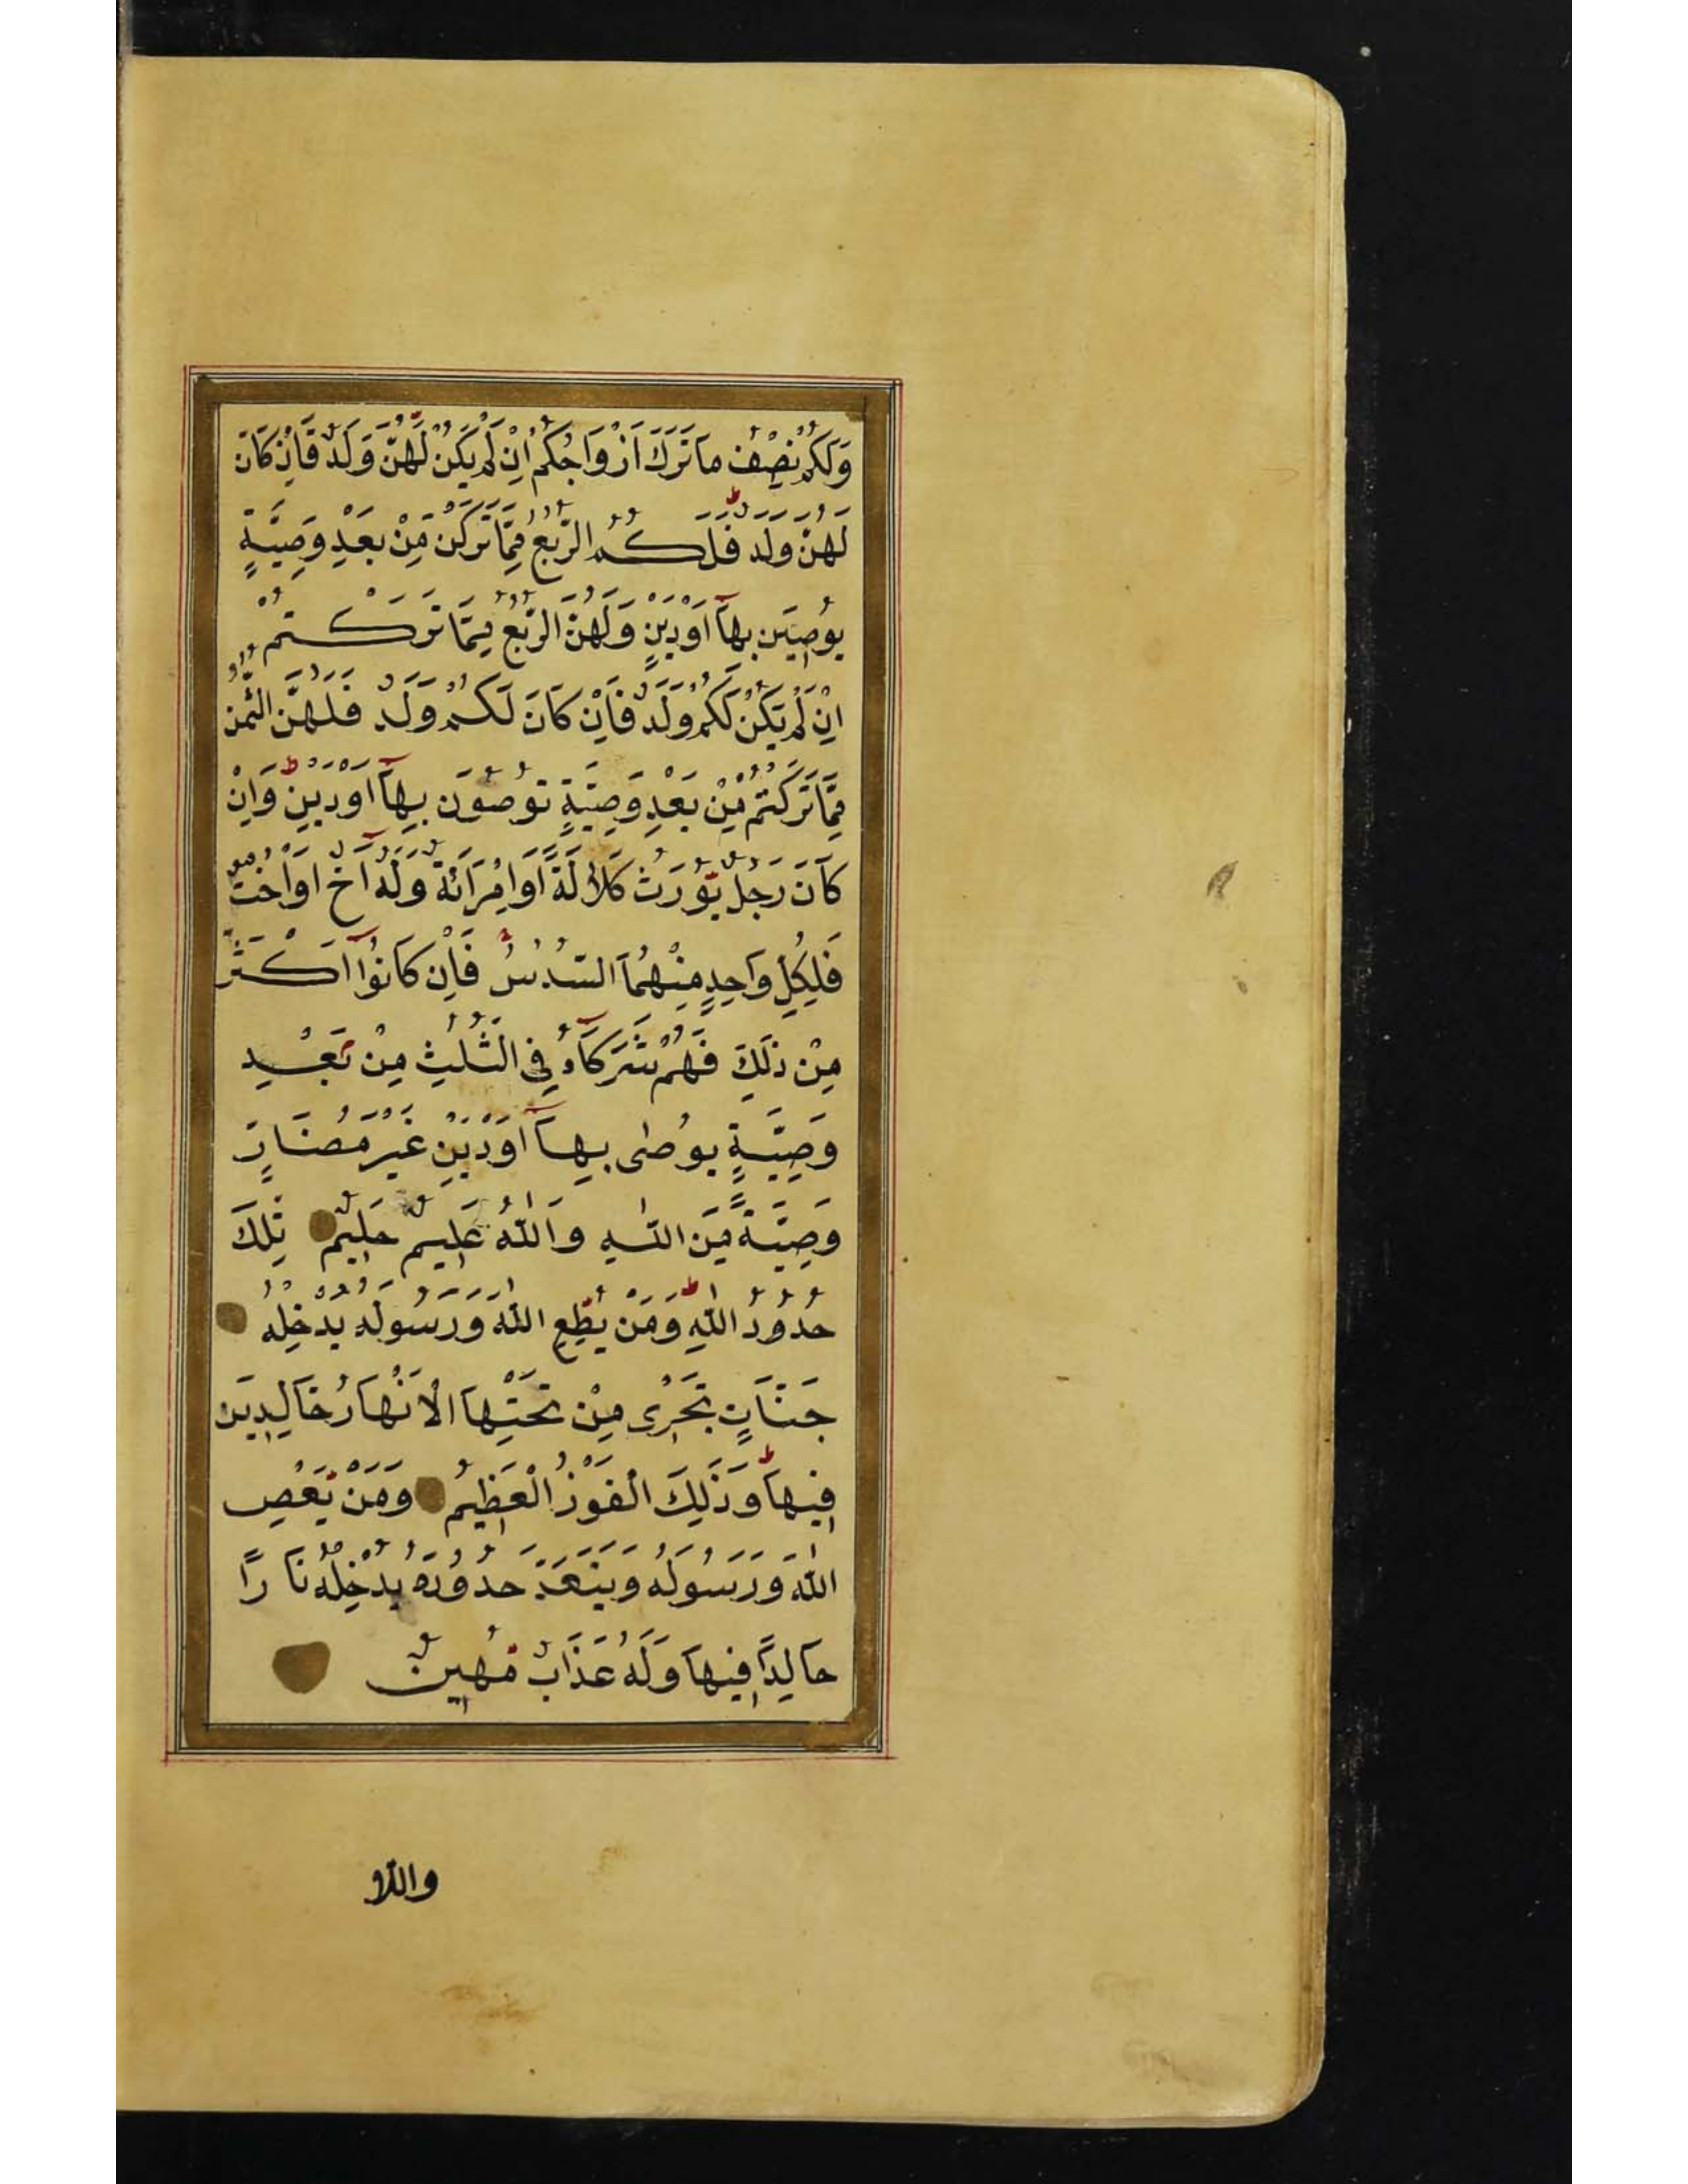 وَلَكُمْ نِصْفُ مَا تَرَكَ اَزْوَاجُكُمْ اِنْ لَمْ يَكُنْ لَهُنَّ وَلَدٌ فَاِنْ كَانَ
لَهُنَّ وَلَدٌ فَلَكُمُ الرُّبُعُ مِمَّا تَرَكْنَ مِنْ بَعْدِ وَصِيَّةٍ
يُوصِيَن بِهَآ اَوْ دَيْنٍ وَلَهُنَّ الرُّبُعُ مِمَّا تَرَكْتُمْ
اِنْ لَمْ يَكُنْ لَكُمْ وَلَدٌ فَاِنْ كَانَ لَكُمْ وَلَدٌ فَلَهُنَّ الثُّمُنُ
مِمَّا تَرَكْتُمْ مِنْ بَعْدِ وَصِيَّةٍ تُوصُونَ بِهَآ اَوْ دَيْنٍ وَاِنْ
كَانَ رَجُلٌ يُوْرَثُ كَلَالَةً اَوِ امْرَاَةٌ وَلَهُ اَخٌ اَوْ اُخْتٌ
فَلِكُلِّ وَاحِدٍ مِنْهُمَا السُّدُسُ فَاِنْ كَانُوْا اَكْثَرَ
مِنْ ذَلِكَ فَهُمْ شُرَكَآءُ فِى الثُّلُثِ مِنْ بَعْدِ
وَصِيَّةٍ يُوصٰى بِهَآ اَوْ دَيْنٍ غَيْرَ مُضَارٍّ
وَصِيَّةً مِنَ اللّٰهِ وَاللّٰهُ عَلِيمٌ حَلِيمٌ تِلْكَ
حُدُوْدُ اللّٰهِ وَمَنْ يُطِعِ اللّٰهَ وَرَسُولَهُ يُدْخِلْهُ
جَنَّاتٍ تَجْرِى مِنْ تَحْتِهَا الْاَنْهَارُ خَالِدِينَ
فِيهَا وَذَلِكَ الْفَوْزُ الْعَظِيمُ وَمَنْ يَعْصِ
اللّٰهَ وَرَسُولَهُ وَيَتَعَدَّ حُدُوْدَهُ يُدْخِلْهُ نَارًا
خَالِدًا فِيهَا وَلَهُ عَذَابٌ مُهِينٌ
واللاو